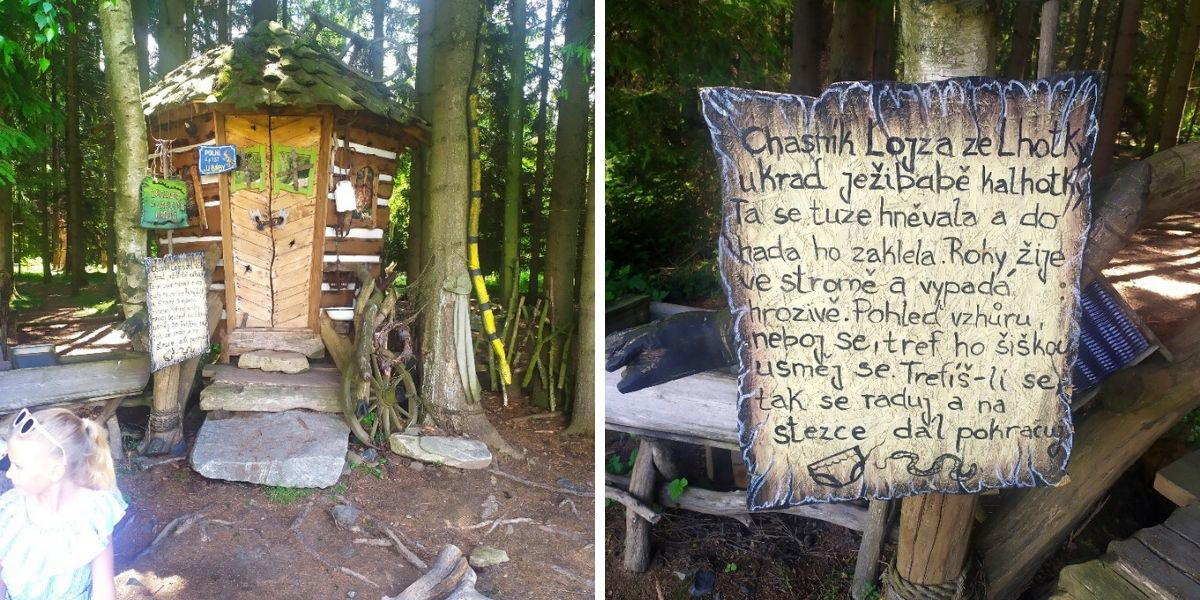 POLNÍ
LÝTKY
Chasník Lojza ze Lhotky
ukrad ježibabě kalhotky
Ta se tuze hněvala a do
hada ho zaklela. Rohy žije
ve stromě a vypadá
hrozivě. Pohleď vzhůru,
neboj se, tref ho šiškou
usměj se. Trefíš-li se
tak se raduj a na
stezce dál pokračuj